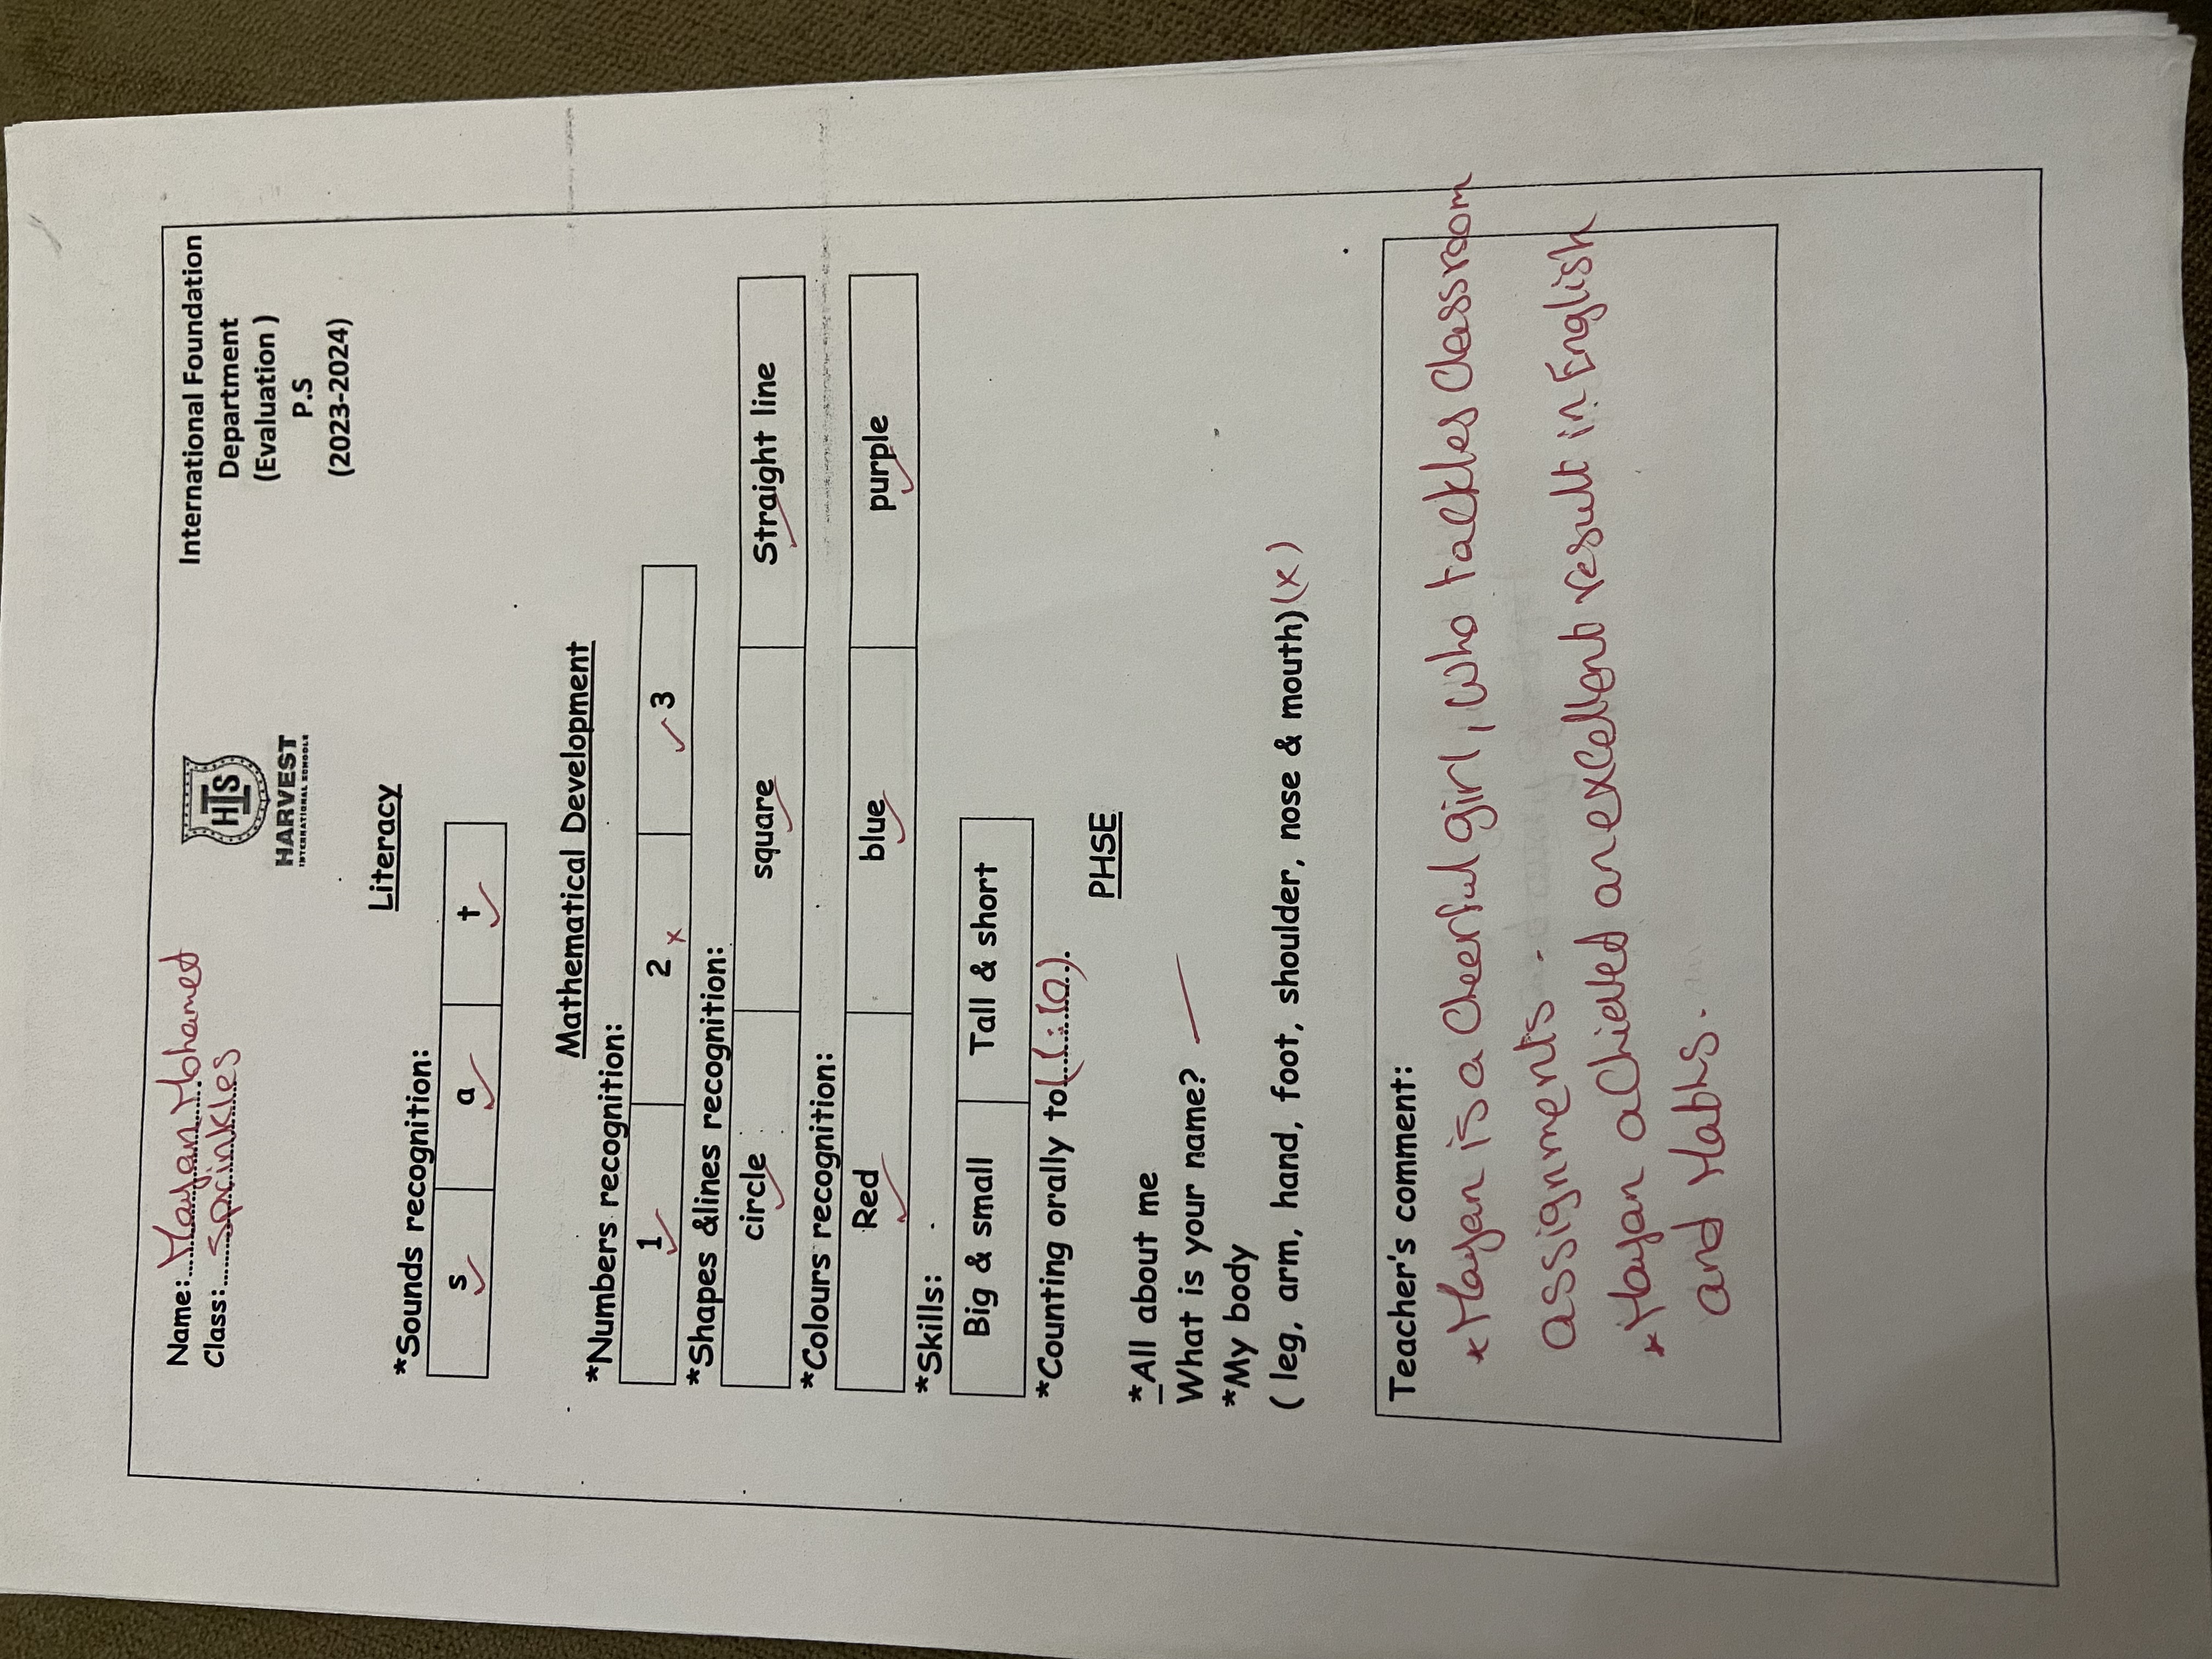 Name: Mayan Mohamed
Class: Sprinkles
HIS
HARVEST
INTERNATIONAL SCHOOLS
International Foundation
Department
(Evaluation )
P.S
(2023-2024)
Literacy
*Sounds recognition:
s a t
Mathematical Development
*Numbers recognition:
1 2 x 3
*Shapes &lines recognition:
circle square Straight line
*Colours recognition:
Red blue purple
*Skills:
Big & small Tall & short
*Counting orally to(1:10).
PHSE
*All about me
What is your name?
*My body
( leg, arm, hand, foot, shoulder, nose & mouth)(x)
Teacher's comment:
* Mayan is a Cheerful girl, who tackles Classroom
assignments.
* Mayan achieved an excellent result in English
and Maths.